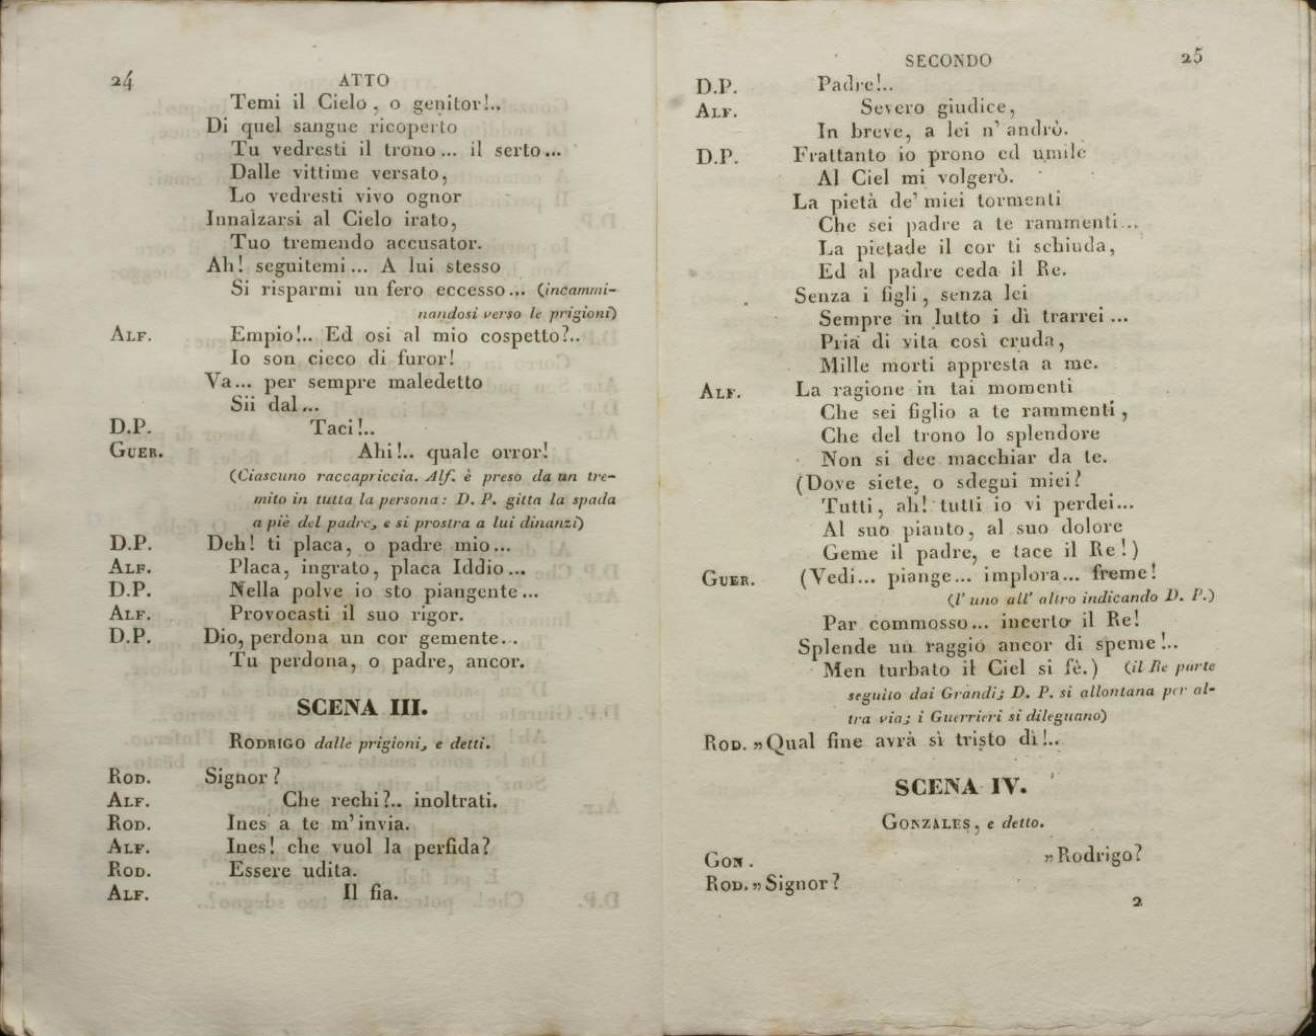 24
ATTO
Temi il Cielo, o genitor!..
Di quel sangue ricoperto
Tu vedresti il trono... il serto...
Dalle vittime versato,
Lo vedresti vivo ognor
Innalzarsi al Cielo irato,
Tuo tremendo accusator.
Ah! seguitemi... A lui stesso
Si risparmi un fero eccesso... (incammi-
nandosi verso le prigioni)
ALF. Empio!.. Ed osi al mio cospetto?..
Io son cieco di furor!
Va... per sempre maledetto
Sii dal...
D.P. Taci!..
GUER. Ahi!.. quale orror!
(Ciascuno raccapriccia. Alf. è preso da un tre-
mito in tutta la persona: D. P. gitta la spada
a piè del padre, e si prostra a lui dinanzi)
D.P. Deh! ti placa, o padre mio...
ALF. Placa, ingrato, placa Iddio...
D.P. Nella polve io sto piangente...
ALF. Provocasti il suo rigor.
D.P. Dio, perdona un cor gemente..
Tu perdona, o padre, ancor.
SCENA III.
RODRIGO dalle prigioni, e detti.
ROD. Signor?
ALF. Che rechi?.. inoltrati.
ROD. Ines a te m'invia.
ALF. Ines! che vuol la perfida?
ROD. Essere udita.
ALF. Il fia.
SECONDO
25
D.P. Padre!..
ALF. Severo giudice,
In breve, a lei n'andrò.
D.P. Frattanto io prono ed umile
Al Ciel mi volgerò.
La pietà de' miei tormenti
Che sei padre a te rammenti...
La pietade il cor ti schiuda,
Ed al padre ceda il Re.
Senza i figli, senza lei
Sempre in lutto i dì trarrei...
Pria di vita così cruda,
Mille morti appresta a me.
ALF. La ragione in tai momenti
Che sei figlio a te rammenti,
Che del trono lo splendore
Non si dee macchiar da te.
(Dove siete, o sdegni miei?
Tutti, ah! tutti io vi perdei...
Al suo pianto, al suo dolore
Geme il padre, e tace il Re!)
GUER. (Vedi... piange... implora... freme!
(l'uno all'altro indicando D. P.)
Par commosso... incerto il Re!
Splende un raggio ancor di speme!..
Men turbato il Ciel si fè.) (il Re parte
seguito dai Grandi; D. P. si allontana per al-
tra via; i Guerrieri si dileguano)
ROD. „Qual fine avrà sì tristo dì!..
SCENA IV.
GONZALES, e detto.
GON. „Rodrigo?
ROD. „Signor?
2